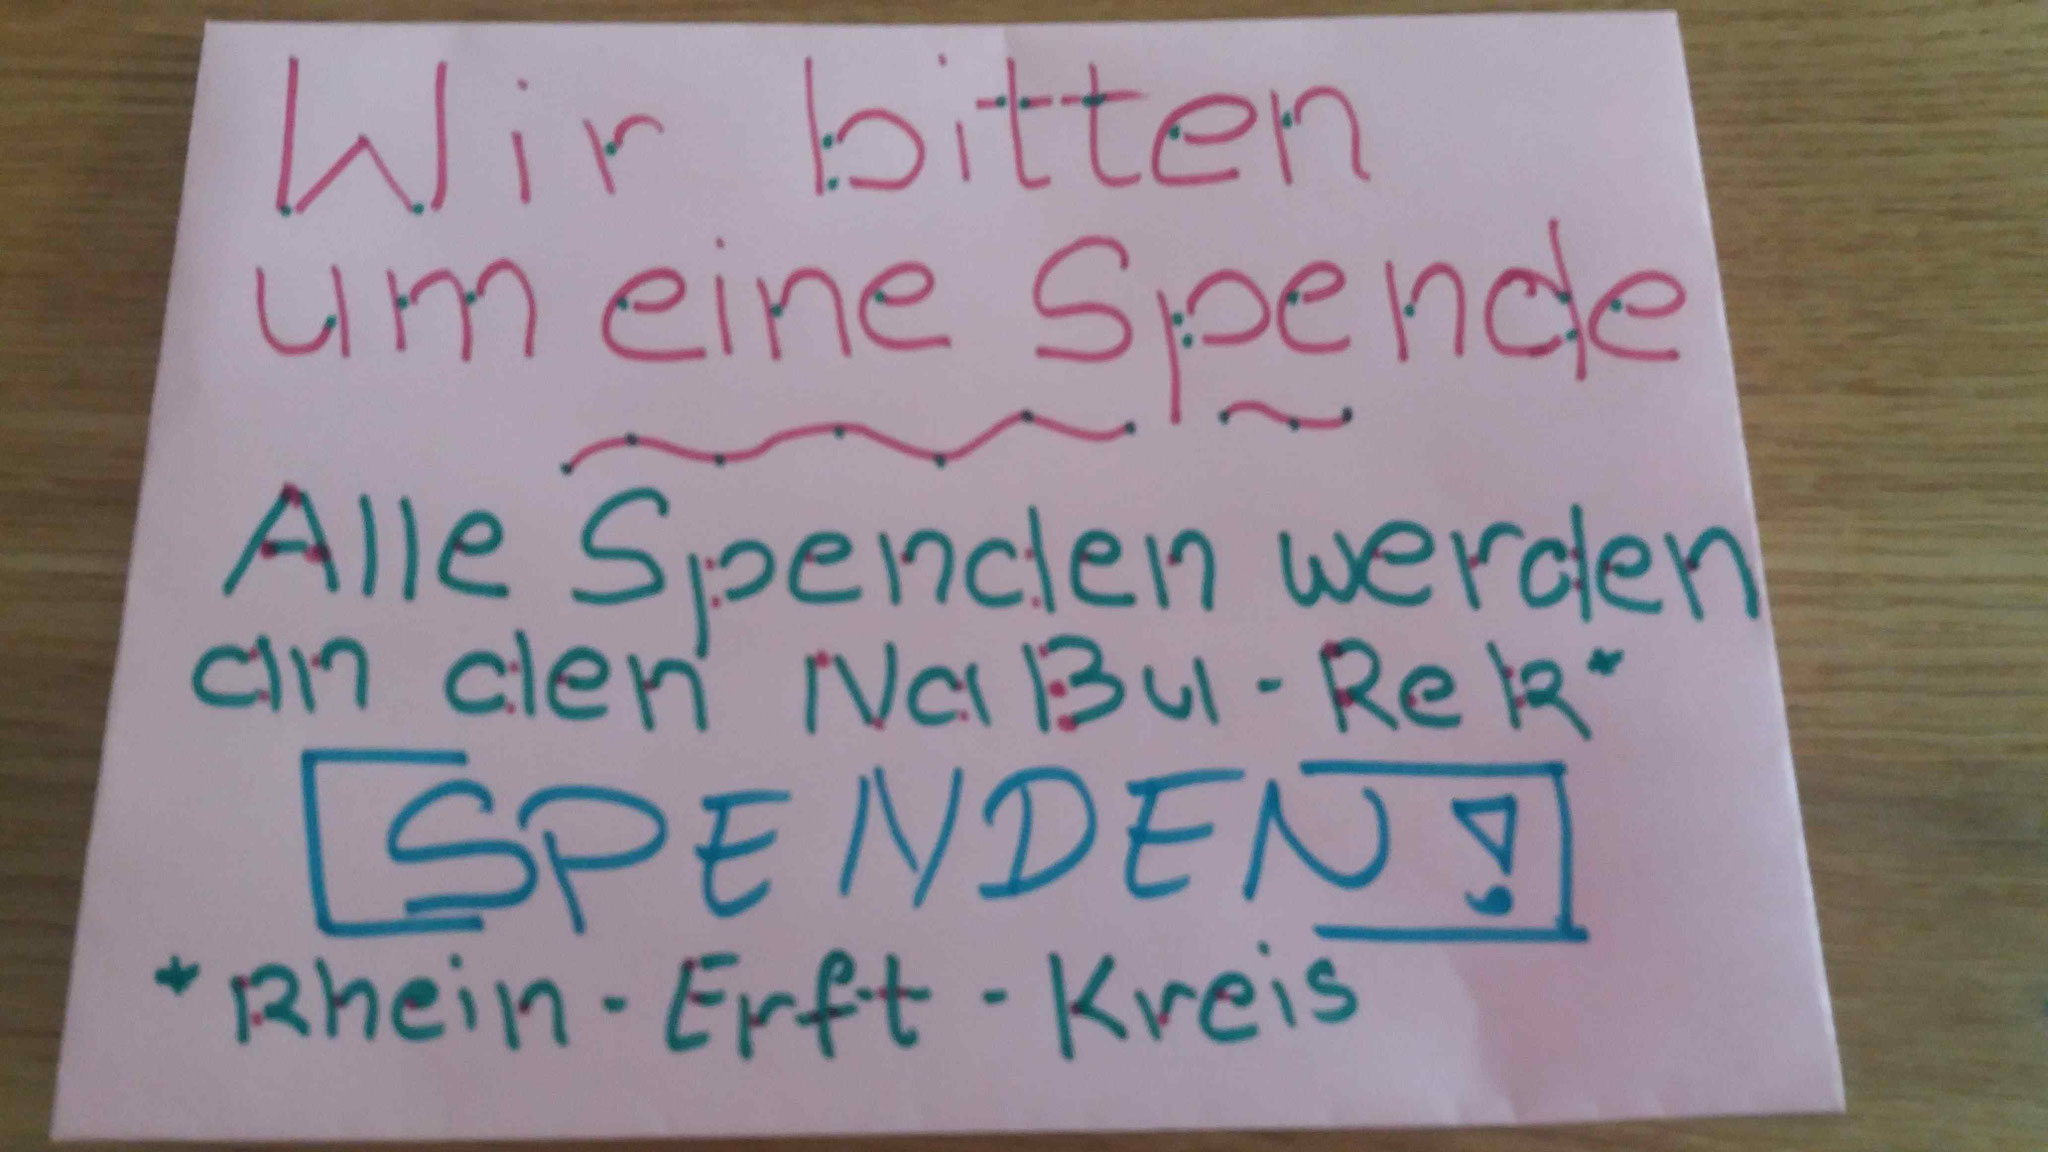 Wir bitten
um eine Spende
Alle Spenden werden
an den NaBu-Rek*
SPENDEN!
*Rhein-Erft-Kreis